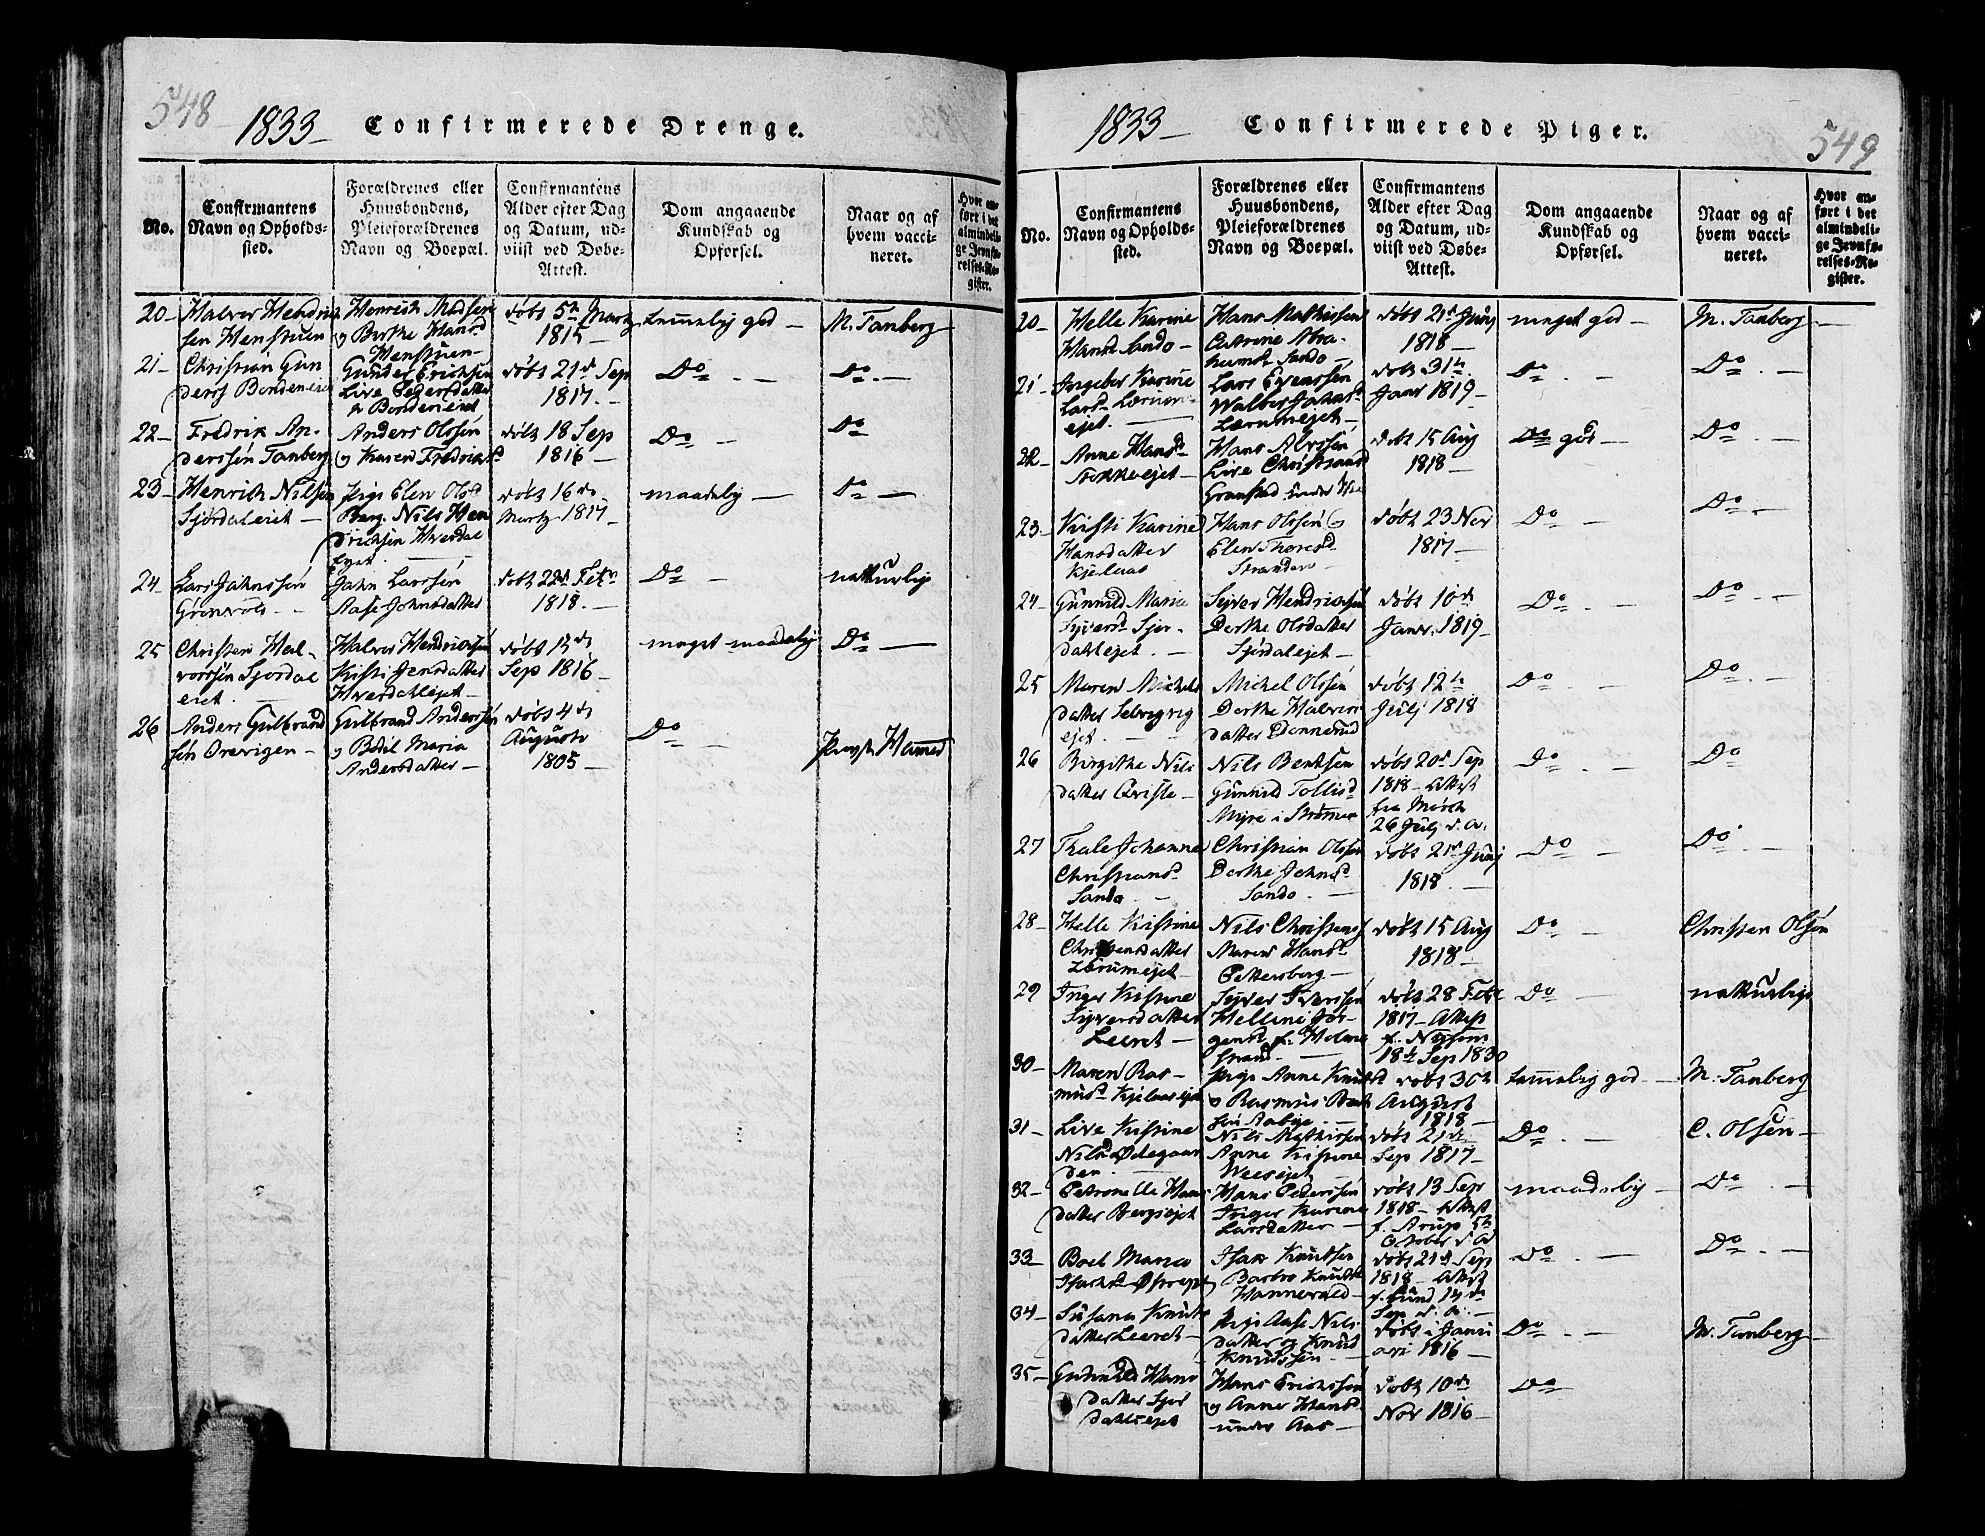 548
1833 - Confirmerede Drenge.
No.
Confirmantens
Navn og Opholds-
sted.
Forældrenes eller
Huusbondens,
Pleieforældrenes
Navn og Boepæl.
Confirmantens
Alder efter Dag
og Datum, ud-
viist ved Døbe-
Attest.
Dom angaaende
Kundskab og
Opførsel.
Naar og af
hvem vacci-
neret.
Hvor an-
ført i det
almindeli-
ge Jevnfø-
relses-Re-
gister.
20 -
Halvor Hendrik
sen Henstuen
Henrich Madsen
og Berthe Hansd
Henstuen -
døbt 5te Martz
1815 -
temmelig god -
M. Tanberg -
21 -
Christian Gun
ders Bondeneiet
Gunder Erichsen
Live Pedersdatter
Bondeneiet
døbt 21d Sep
1817. -
Do -
Do -
22 -
Fredrik An-
derssøn Tanberg
Anders Olssøn
og Karen Fredriksd
døbt 18 Sep
1816 -
Do -
Do
23 -
Henrik Nilsen
Sjørdaleiet -
pige Elen Olsd
Berg. Nils Hen
drichsen Hverdal
Ejet
døbt 16 de
Martz 1817 -
maadelig -
Do -
24 -
Lars Jahnssøn
Grønvold -
Jahn Larssøn
Aase Johnsdatter
døbt 22d Febr
1818. -
Do -
natturlige
25
Christen Hal-
vorssøn Sjørdal
eiet. -
Halvor Hendrichsøn
Kisti Jensdatter
Hverdahlejet -
døbt 15 de
Sep 1816 -
meget maadelig
Do -
26
Anders Gulbrand
søn Drevigen -
Gulbrand Anderssøn
og Bodil Maria
Andersdatter -
døbt 4 de
Augustii
1805 -
Do -
Præst Hammer
1833 - Confirmerede Piger.
549
No.
Confirmantens
Navn og Opholds-
sted.
Forældrenes eller
Huusbondens,
Pleieforældrenes
Navn og Boepæl.
Confirmantens
Alder efter Dag
og Datum, ud-
viist ved Døbe-
Attest.
Dom angaaende
Kundskab og
Opførsel.
Naar og af
hvem vacci-
neret.
Hvor an-
ført i det
almindeli-
ge Jevnfø-
relses-Re-
gister.
20 -
Helle Karine
Hansd Sando -
Hans Mathissen
Catrine Abra-
hamsd Sando -
døbt 21d Junj
1818 -
meget god -
M. Tanberg -
21
Ingebor Karine
Larsd Lærum-
ejet. -
Lars Evenssøn
Walbor Johnsd
Lærumejet -
døbt 31te
Janr 1819 -
Do -
Do -
22 -
Anne Hansd
Stokkeejet -
Hans Alvssøn
Live Christiansd
Granstad under
døbt 15 Aug
1818 -
god -
Do -
23
Kristi Karine
Hansdatter
Kjelaas
Hans Olssøn og
Elen Thoresd
Stranden -
døbt 23 Nov
1817 -
Do -
Do -
24 -
Gunnild Maria
Syversd Sjør-
dahlejet. -
Sejver Hendrichsen
Berthe Olsdatter
Sjørdalejet -
døbt 10 de
Janr. 1819 -
Do -
Do -
25
Maren Michels
datter Selvigvig
ejet.
Michel Olssøn
Dorthe Halvors
datter Dønnerud
døbt 12te
Julj 1818
Do -
Do -
26
Birgithe Nils
datter Qviste -
Nils Bentsen
Gunnild Tollisd
Myre i Strømm
døbt 20d Sep
1818 - Attest
fra Mørch
26 Julj d. A.
Do -
Do
27
Thale Johanne
Christiansd
Sando -
Christian Olssøn
Dorthe Johnsd
Sando. -
døbt 21d Junj
1818. -
Do -
Do -
28 -
Helle Kristine
Christensdatter
Lærumejet -
Nils Christens
Maren Hansd
Pettersberg -
døbt 15 Aug
1818 -
Do -
Christen Olsøn
29
Inger Kristine
Syversdatter
Leeret -
Sejver Iverssøn
Helline Jør-
gensd fr. Holme
strand. -
døbt 28 Febr
1817 - Attest
f. Nissen
18de Sep 1830
Do -
natturlige
30 -
Maren Ras-
musd Kjelaasejet
pige Anne Knutsd
og Rasmus Bent
søn Aabye. -
døbt 30te
August
1818 -
temmelig god -
M. Tanberg
31 -
Live Kristine
Nilsd Ødegaar
den. -
Nils Mathissøn
Anne Kistine
Weesejet -
døbt 21de
Sep 1817 -
Do -
C. Olsen -
32 -
Petronelle Hans
datter Bergsejet
Hans Pederssøn
Inger Karine
Larsdatter -
døbt 13 Sep
1818 - Attest
f. Arup 5te
October d. A
maadelig -
Do -
33
Boel Maria
Isachsd
Isak Knutsen
Barbro Knutsd
Hannevold -
døbt 21d Sep
1818 - Attest
f. Lund 14 de
Sep d. A. -
Do -
Do -
34 -
Susana Knuts
datter Leeret -
pige Aase Nils
datter og Knud
Knudssøn -
døbt i Janu
ari 1816 -
Do -
M. Tanberg -
35 -
Gunnild Hans
datter Sjør
dahlsejet
Hans Erichssøn
og Anne Hansd
under Aas -
døbt 10 de
Nov 1816 -
Do